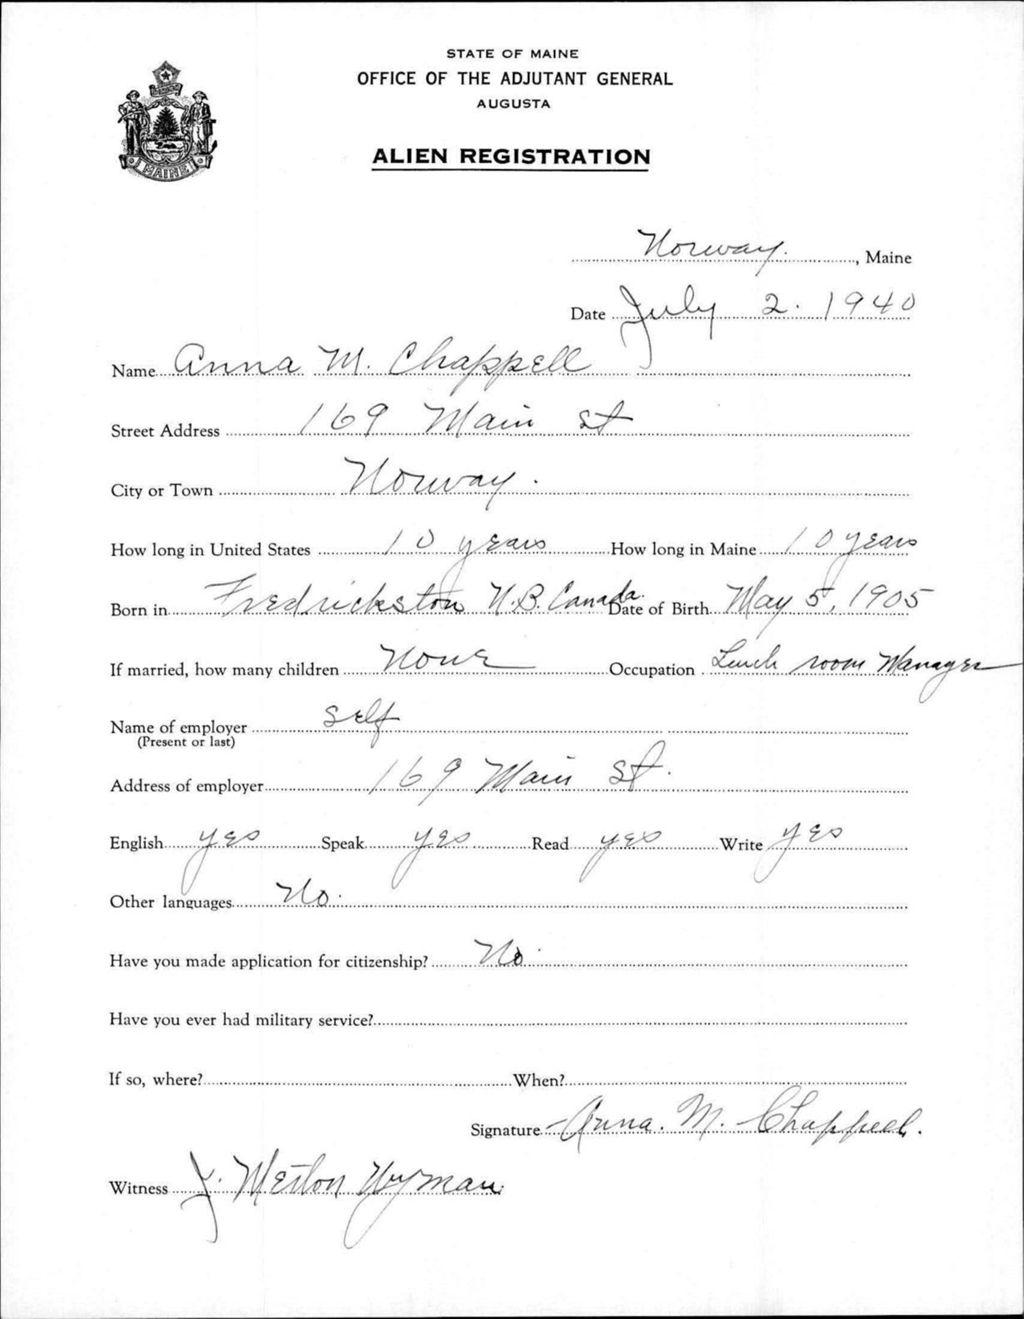 STATE OF MAINE
OFFICE OF THE ADJUTANT GENERAL
AUGUSTA
ALIEN REGISTRATION
MAINE
Norway., Maine
Date July 2. 1940
Name Anna M. Chappell
Street Address 169 Main St
City or Town Norway.
How long in United States 10 years How long in Maine 10 years
Born in Fredrickston N.B. Canada. Date of Birth May 5, 1905
If married, how many children None Occupation Lunch room Manager
Name of employer self
(Present or last)
Address of employer 169 Main St.
English yes Speak yes Read yes Write yes
Other languages No.
Have you made application for citizenship? No.
Have you ever had military service?
If so, where? When?
Signature Anna. M. Chappell.
Witness J. Merton Wyman